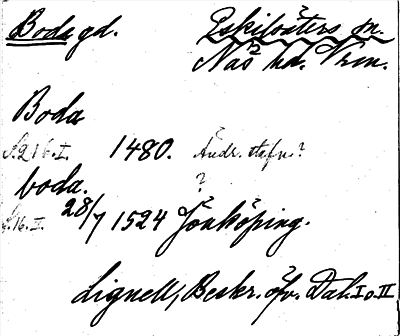 Boda gd. Eskilsäters sn.
Näs hd. Vrm.
Boda
s. 216. I. 1480. Ändr. stafn.?
boda. ?
s. 16. II. 28/7 1524 Jönköping.
Lignell, Beskr. öfv. Dal. I o. II